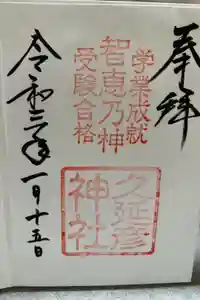 奉拝
学業成就
智恵乃神
受験合格
久延彦
神社
令和三年
一月十五日